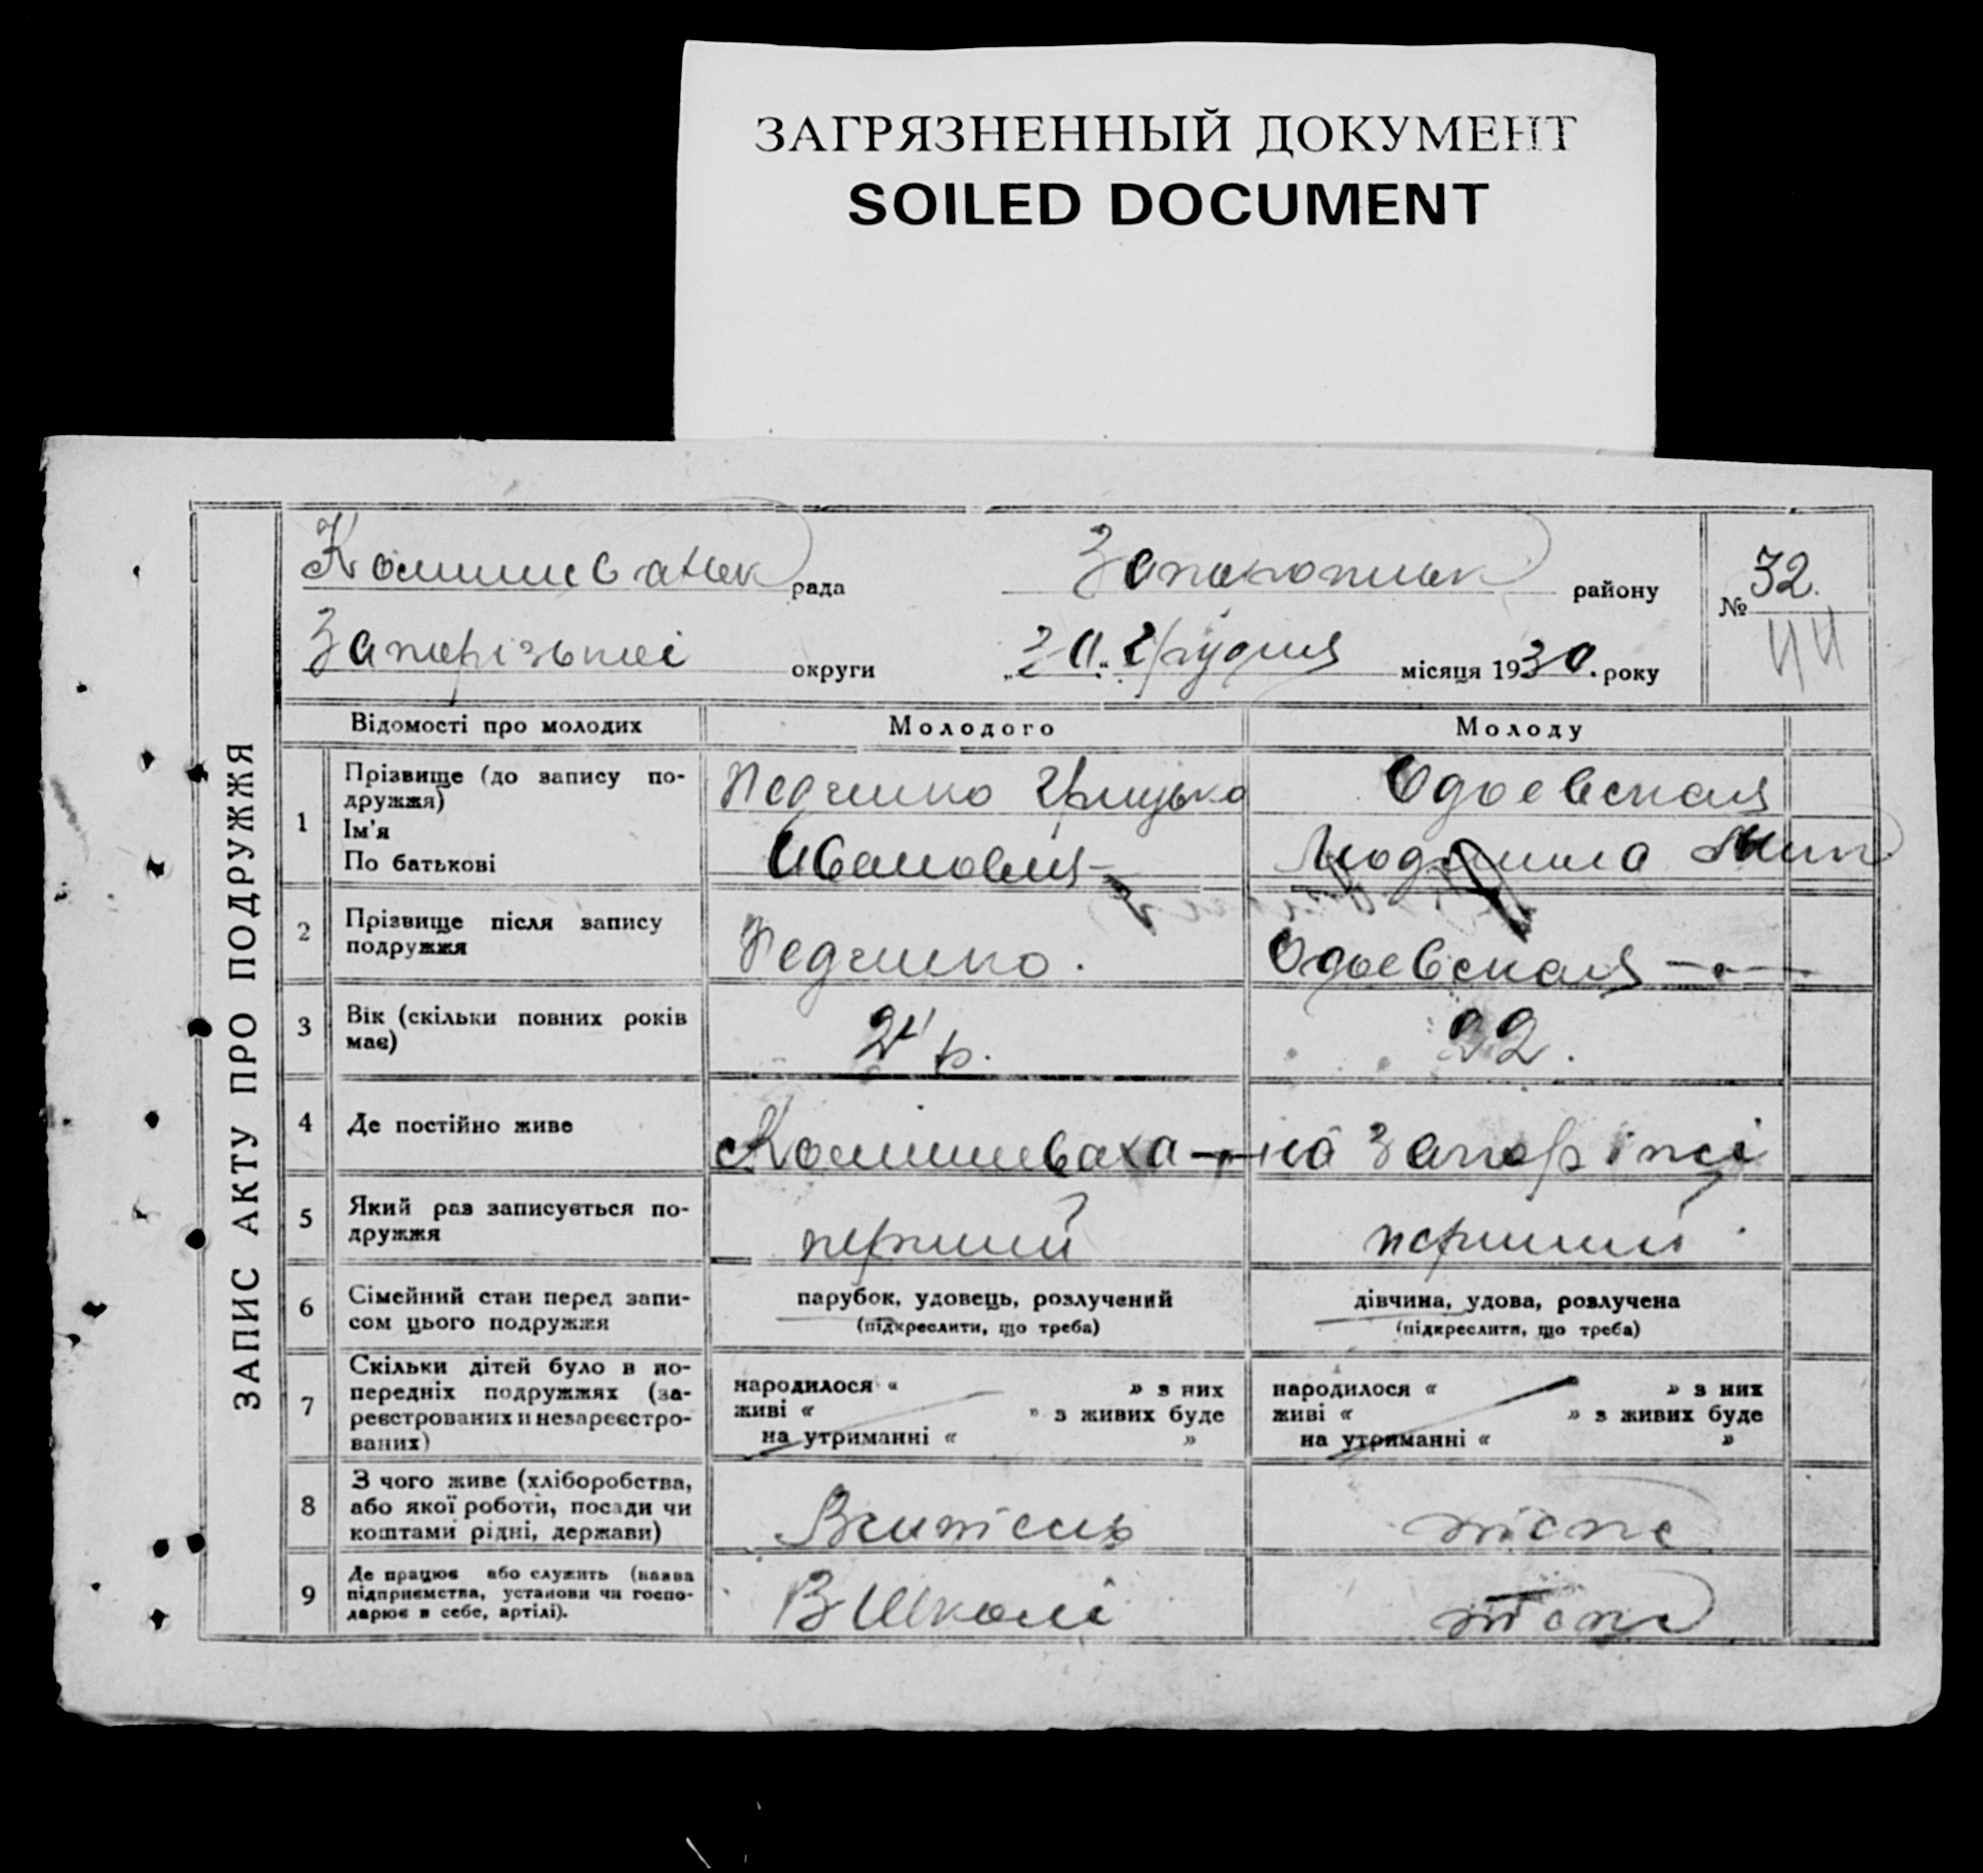 ЗАГРЯЗНЕННЫЙ ДОКУМЕНТ
SOILED DOCUMENT
ЗАПИС АКТУ ПРО ПОДРУЖЖЯ
рада
району
№ 32.
Запорізької округи
"20" Грудня місяця 1930. року
44
Відомості про молодих
Молодого
Молоду
1
Прізвище (до запису по-
дружжя)
Ім'я
По батькові
Педченко Грицько
Иванович
Одоевская
Людмила
2
Прізвище після запису
подружжя
Педченко.
Одоевская
3
Вік (скільки повних років
має)
р.
22.
4
Де постійно живе
Комишеваха на Запоріжжі
5
Який раз записується по-
дружжя
перший
перший
6
Сімейний стан перед запи-
сом цього подружжя
парубок, удовець, розлучений
(підкреслити, що треба)
дівчина, удова, розлучена
(підкреслити, що треба)
7
Скільки дітей було в по-
передніх подружжях (за-
реєстрованих и незареєстро-
ваних)
народилося « » з них
живі « » з живих буде
на утриманні « »
народилося « » з них
живі « » з живих буде
на утриманні « »
8
З чого живе (хліборобства,
або якої роботи, посади чи
коштами рідні, держави)
Вчитель
тоже
9
Де працює або служить (назва
підприємства, установи чи госпо-
дарює в себе, артілі).
В Школі
тоже